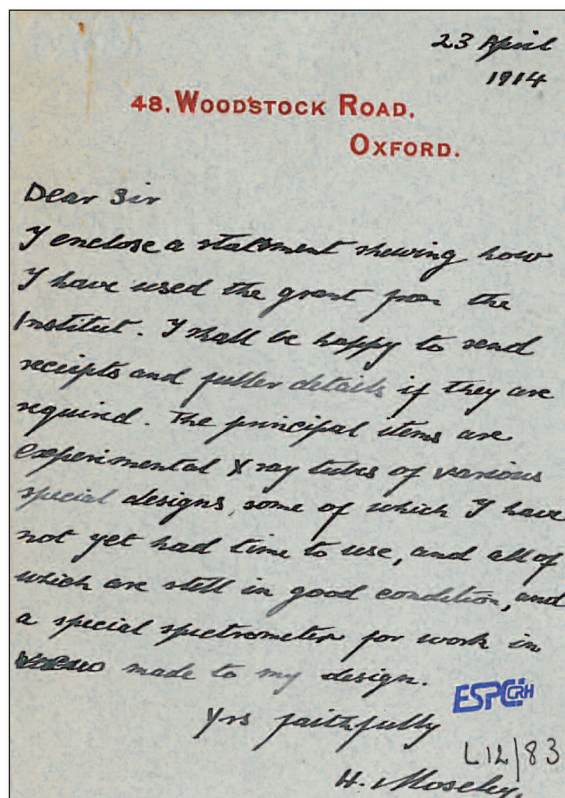 23 April
1914
48, WOODSTOCK ROAD,
OXFORD.
Dear Sir
I enclose a statement shewing how
I have used the grant from the
Institut. I shall be happy to send
receipts and fuller details if they are
required. The principal items are
experimental X ray tubes of various
special designs, some of which I have
not yet had time to use, and all of
which are still in good condition, and
a special spectrometer for work in
made to my design.
Yrs faithfully
ESPCI CRH
L12/83
H. Moseley.